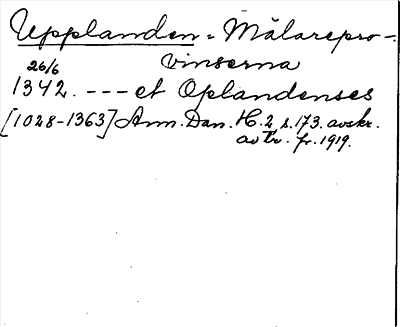 Upplanden = Mälarepro-
vinserna
26/6
1342. --- et Oplandenses
[1028-1363] Ann. Dan. H. 2, s. 173. avskr.
av tr. fr. 1919.